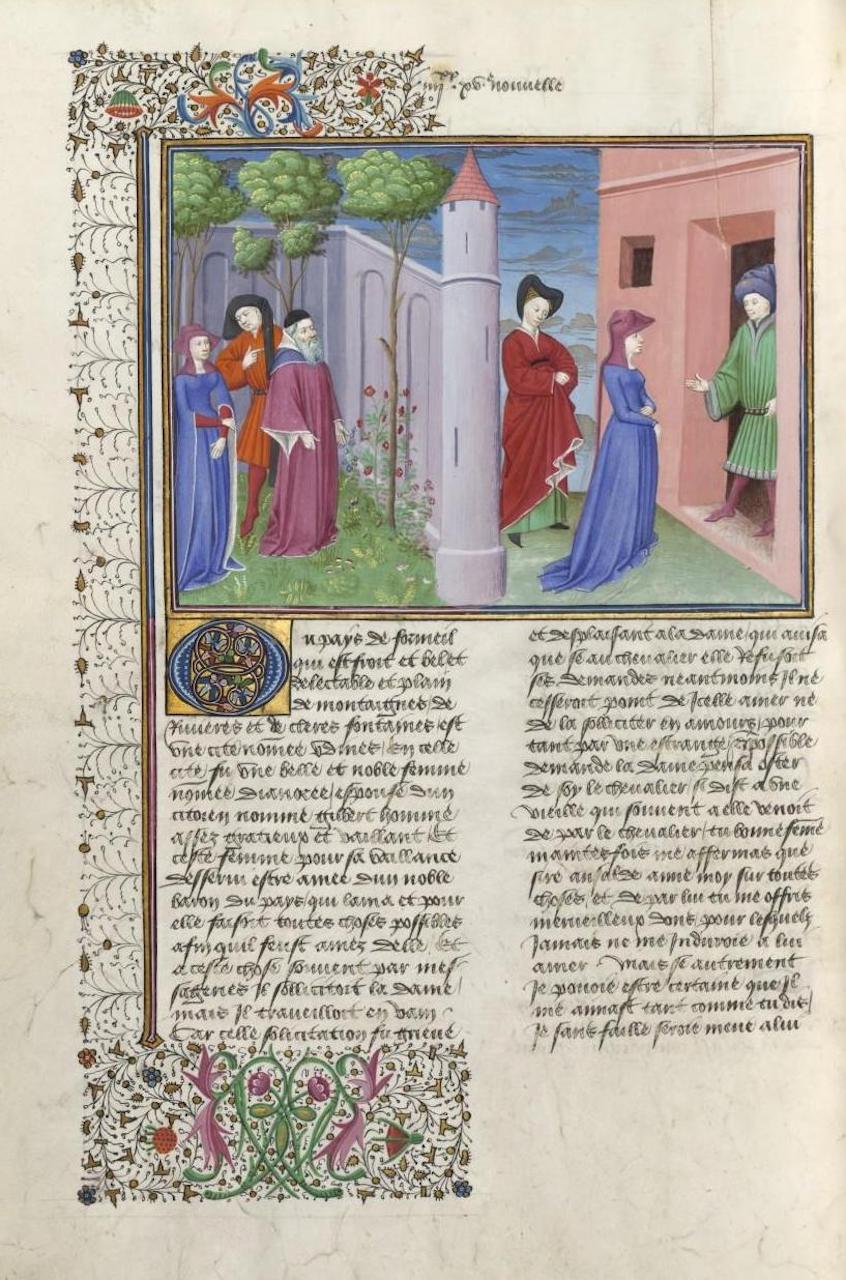 iiii^xx. xv. nouvelle
Ou pays de formeil
qui est froit et belet
delectable et plain
de montaignes de
Rivieres et de cleres fontaines est
une cite nomee Udines / en celle
cite fu une belle et noble femme
nomee dianoree / espouse dun
citoien nomme gilbert homme
assez gratieux et vaillant / Et
ceste femme pour sa vaillance
desservi estre amee dun noble
baron du pays qui lama et pour
elle faisoit toutes choses possibles
afin quil feust amez delle / Et
a ceste chose souvent par mes
sageries Il sollicitoit la dame /
mais Il traveilloit en vain /
Car celle solicitation fu grieve
et desplaisant a la dame / qui avisa
que se au chevalier elle Refusoit
ses demandes neantmoins Il ne
cesseroit point de Icelle amer ne
de la soliciter en amours / pour
tant par une estrange et possible
demande la dame pensa oster
de soy le chevalier si dist a une
vieille qui souvent a elle venoit
de par le chevalier / tu bonne feme
maintes fois me affermas que
sire ansalde aime moy sur toutes
choses / et de par lui tu me offris
merveilleux dons / pour lesquelz
Jamais ne me Induiroie a lui
amer mais se autrement
Je pouoie estre certaine que Il
me amast tant comme tu dis /
Je sans faille seroie meue a lui